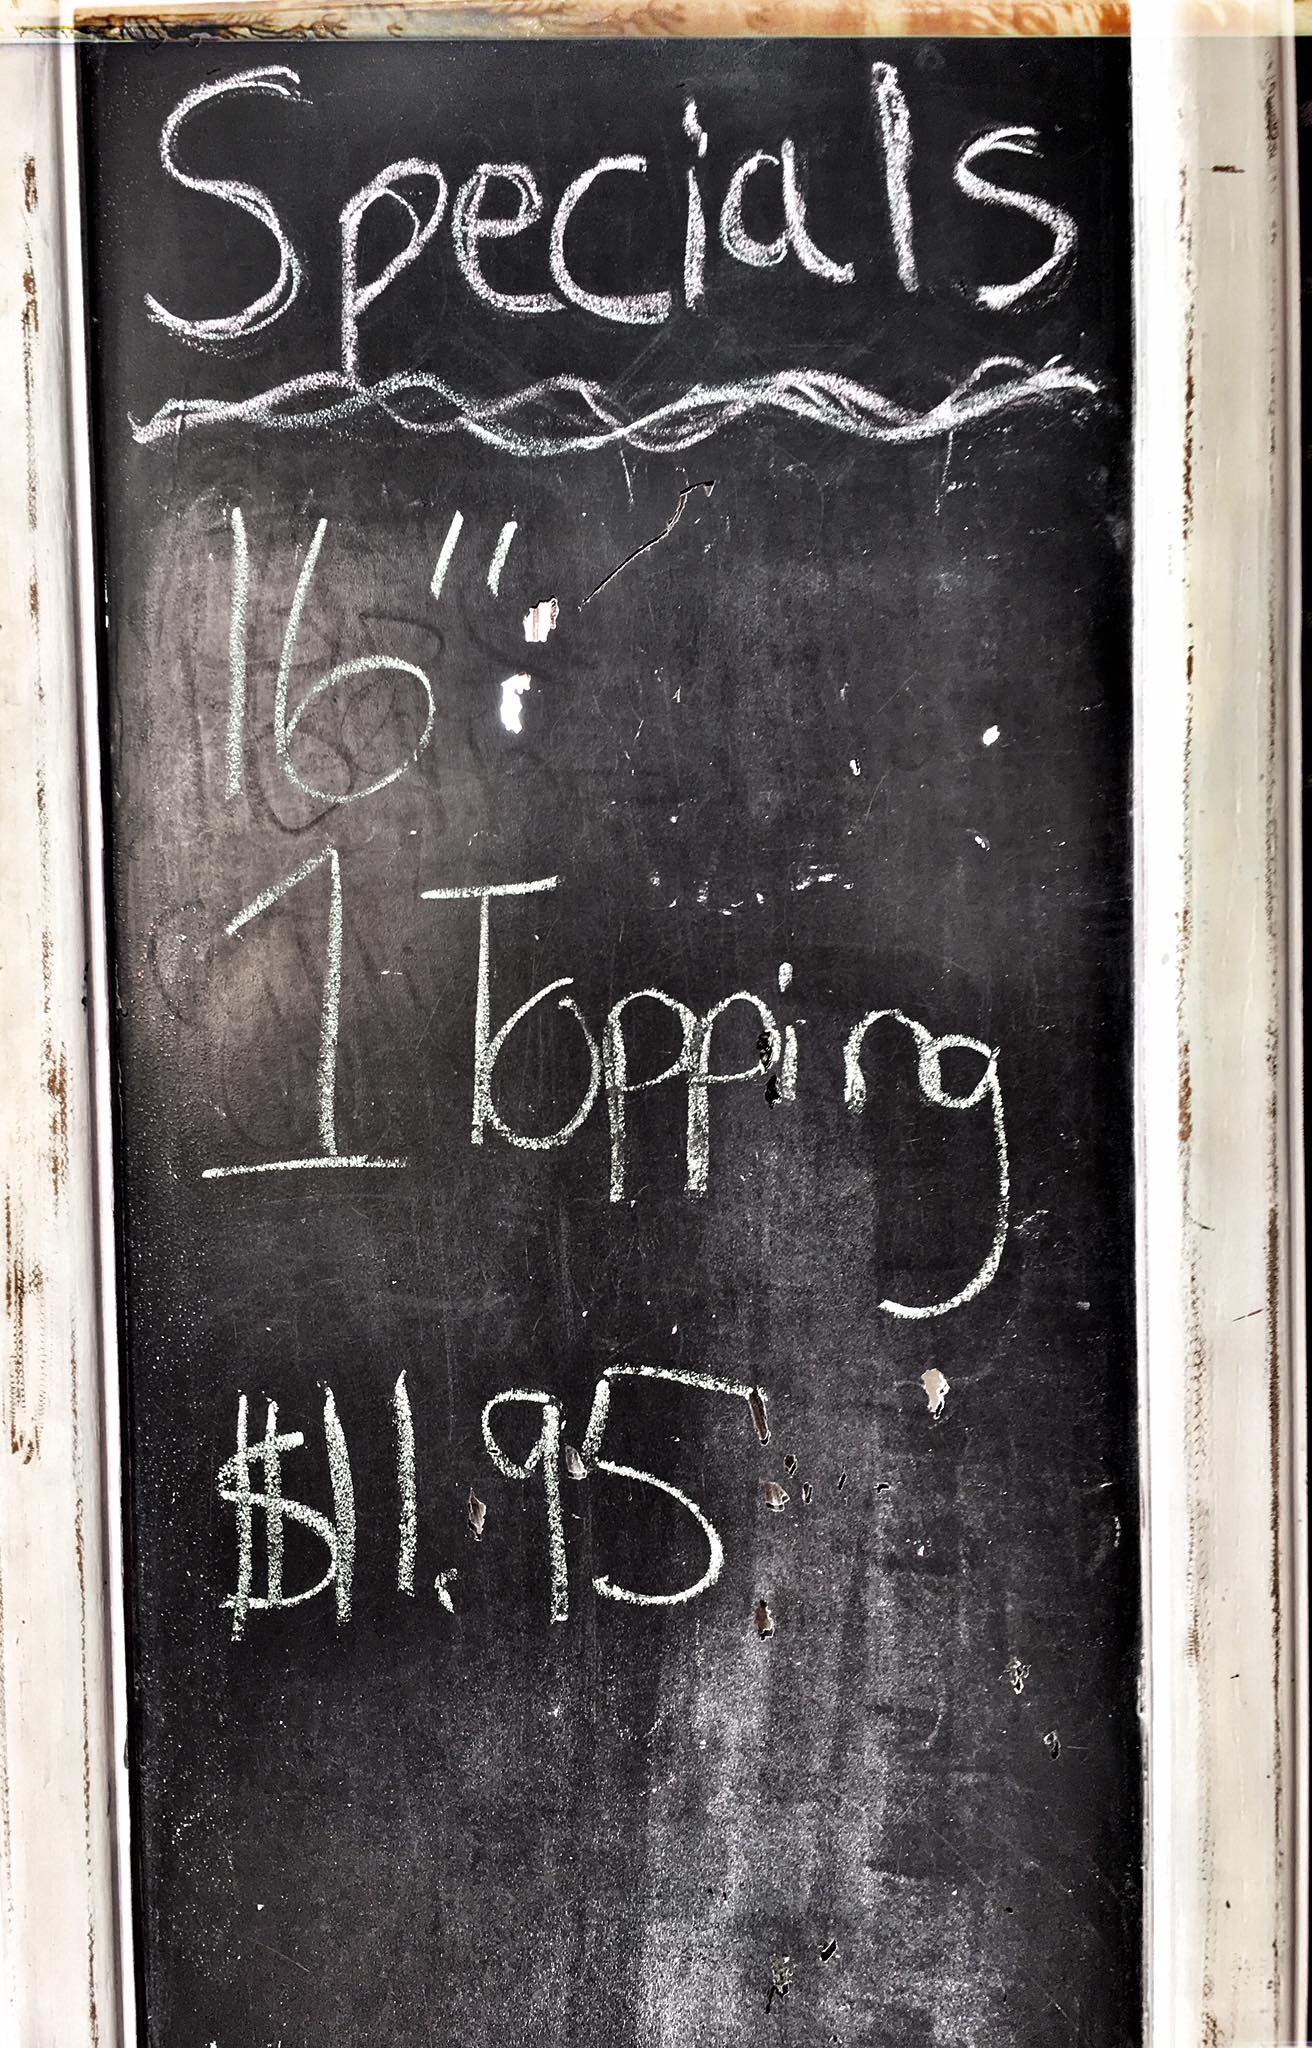 Specials
16"
1 Topping
$11.95